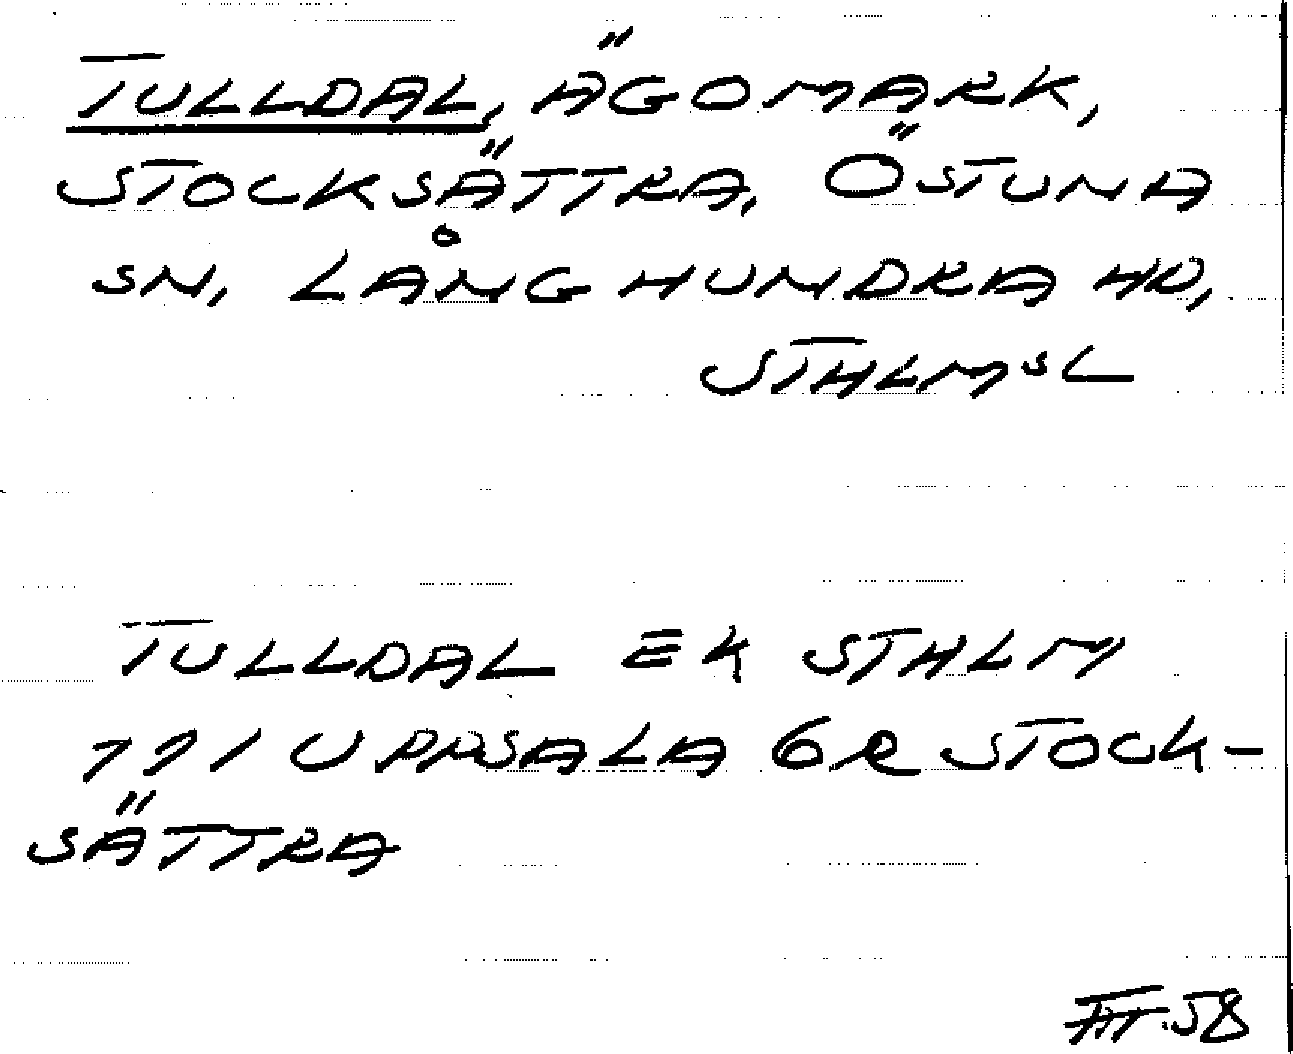 TULLDAL, ÄGOMARK,
STOCKSÄTTRA, ÖSTUNA
SN, LÅNGHUNDRA HD,
STHLMS L
TULLDAL EK STHLM
771 UPPSALA 6R STOCK-
SÄTTRA
58